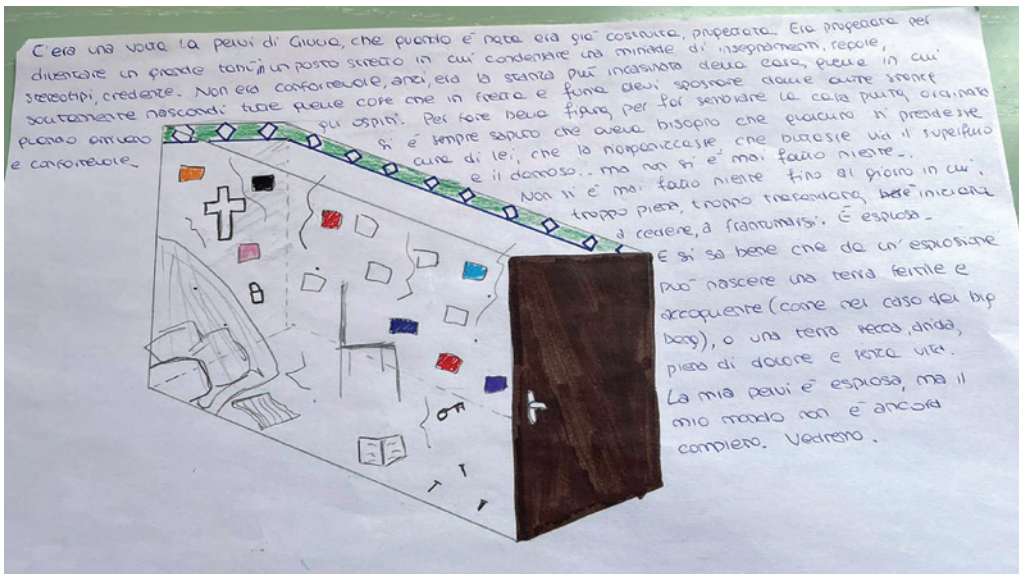 C'era una volta la pelvi di Giulia, che quando è nata era già costruita, progettata. Era progettata per
diventare un grande tomb, un posto stretto in cui condensare una miriade di insegnamenti, regole,
stereotipi, credenze. Non era confortevole, anzi, era la stanza più incasinata della casa, quella in cui
solitamente nascondi tutte quelle cose che in fretta e furia devi spostare dalle altre stanze
quando arrivano gli ospiti. Per fare bella figura, per far sembrare la casa pulita, ordinata
e confortevole.
Si è sempre saputo che aveva bisogno che qualcuno si prendesse
cura di lei, che la riorganizzasse, che buttasse via il superfluo
e il dannoso... ma non si è mai fatto niente...
Non si è mai fatto niente fino al giorno in cui,
troppo piena, troppo trascurata, iniziava
a cedere, a frantumarsi. È esplosa.
E si sa bene che da un'esplosione
può nascere una terra fertile e
accogliente (come nel caso del big
bang), o una terra secca, arida,
piena di dolore e senza vita.
La mia pelvi è esplosa, ma il
mio mondo non è ancora
completo. Vedremo.